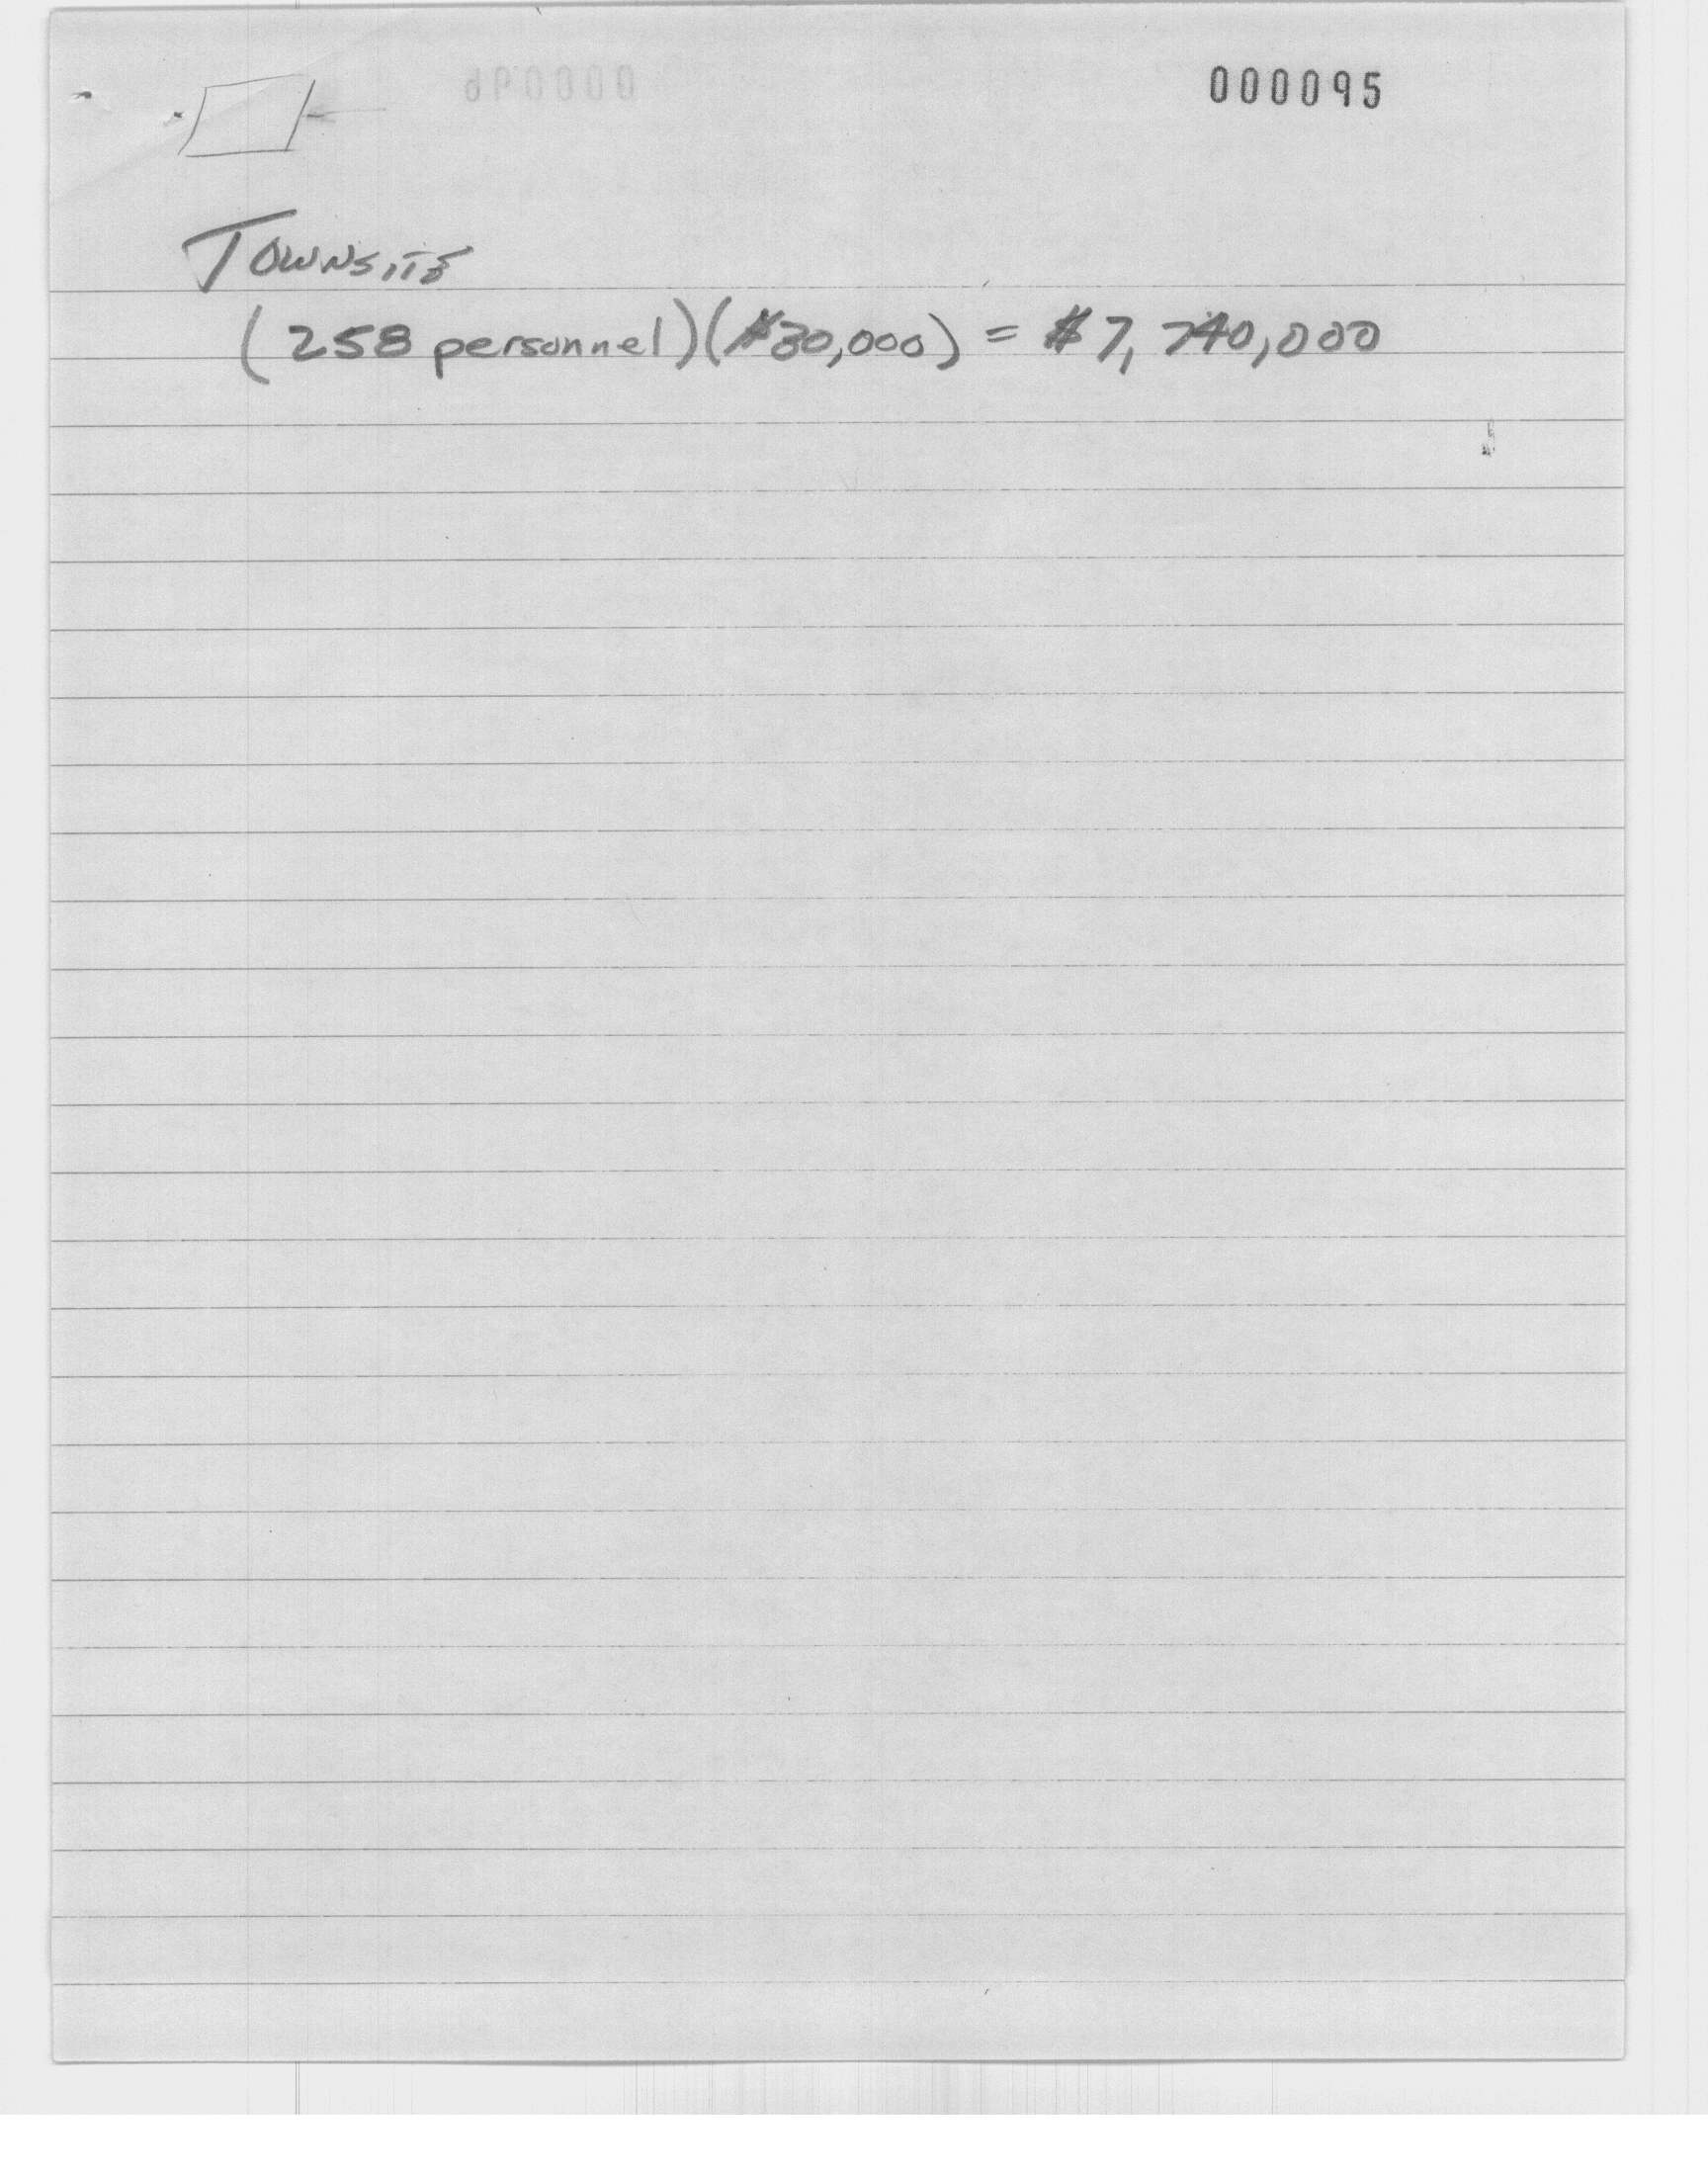 000095
TOWNSITE
(258 personnel)($30,000) = $7,740,000